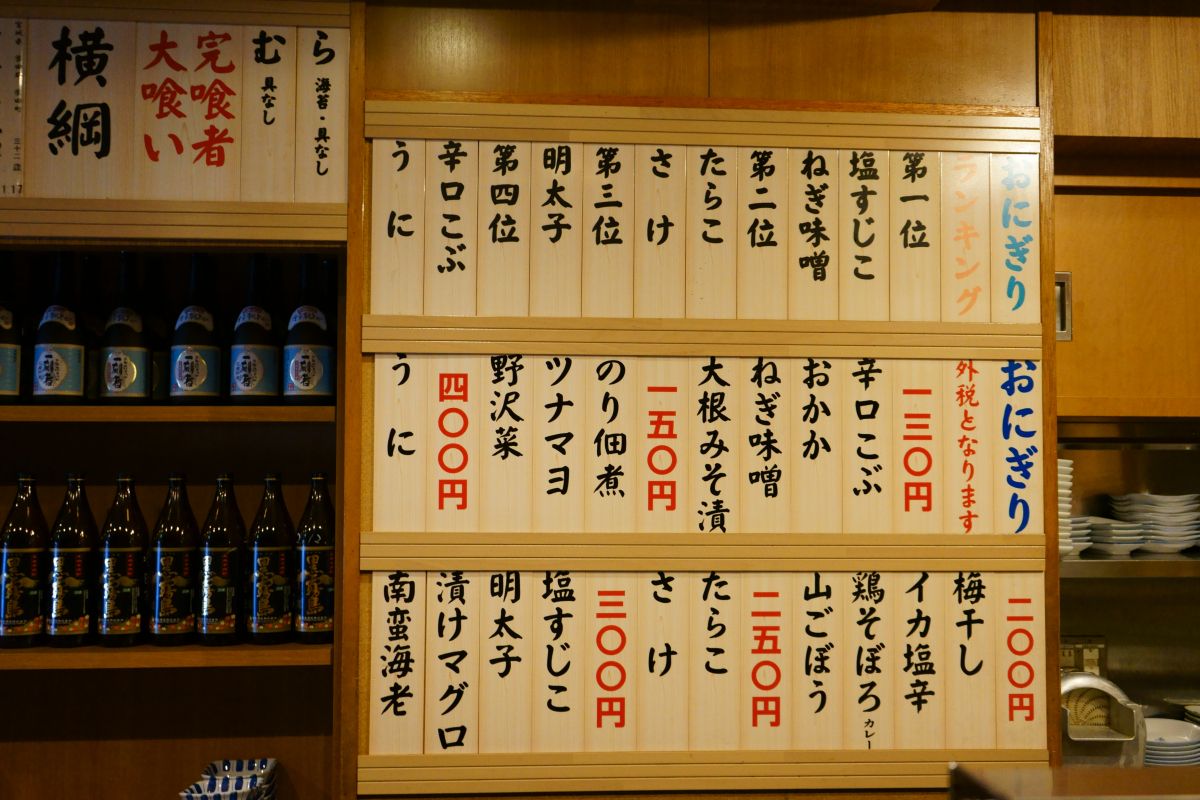 おにぎり
ランキング
第一位
塩すじこ
ねぎ味噌
第二位
たらこ
さけ
第三位
明太子
第四位
辛口こぶ
うに
おにぎり
外税となります
一三〇円
辛口こぶ
おかか
ねぎ味噌
大根みそ漬
一五〇円
のり佃煮
ツナマヨ
野沢菜
四〇〇円
うに
二〇〇円
梅干し
イカ塩辛
鶏そぼろカレー
山ごぼう
二五〇円
たらこ
さけ
三〇〇円
塩すじこ
明太子
漬けマグロ
南蛮海老
ら 海苔・具なし
む 具なし
完喰者
大喰い
横綱
三十二歳
117